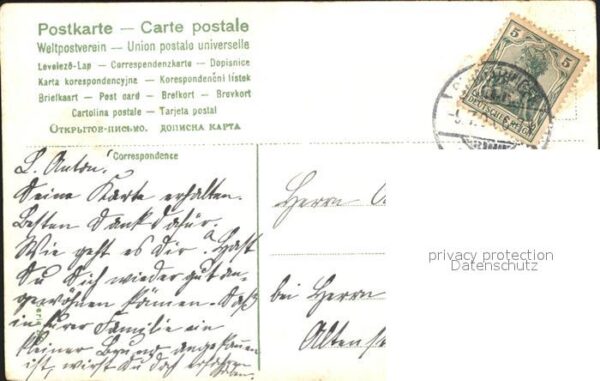 Postkarte — Carte postale
Weltpostverein — Union postale universelle
Levelező-Lap — Correspondenzkarte — Dopisnice
Karta korespondencyjna — Korespondenční lístek
Briefkaart — Post card — Brefkort — Brevkort
Cartolina postale — Tarjeta postal
Открытое письмо. дописна карта
5 5
DEUTSCHES REICH
Correspondence
L. Anton!
Deine Karte erhalten.
Besten Dank dafür.
Wie geht es Dir? Hast
Du Dich wieder gut an-
gewöhnen können. Daß
in Eurer Familie ein
kleiner angekommen
ist, wirst Du doch erfahren
haben.
Serie
Herrn
bei Herrn
Altens
privacy protection
Datenschutz